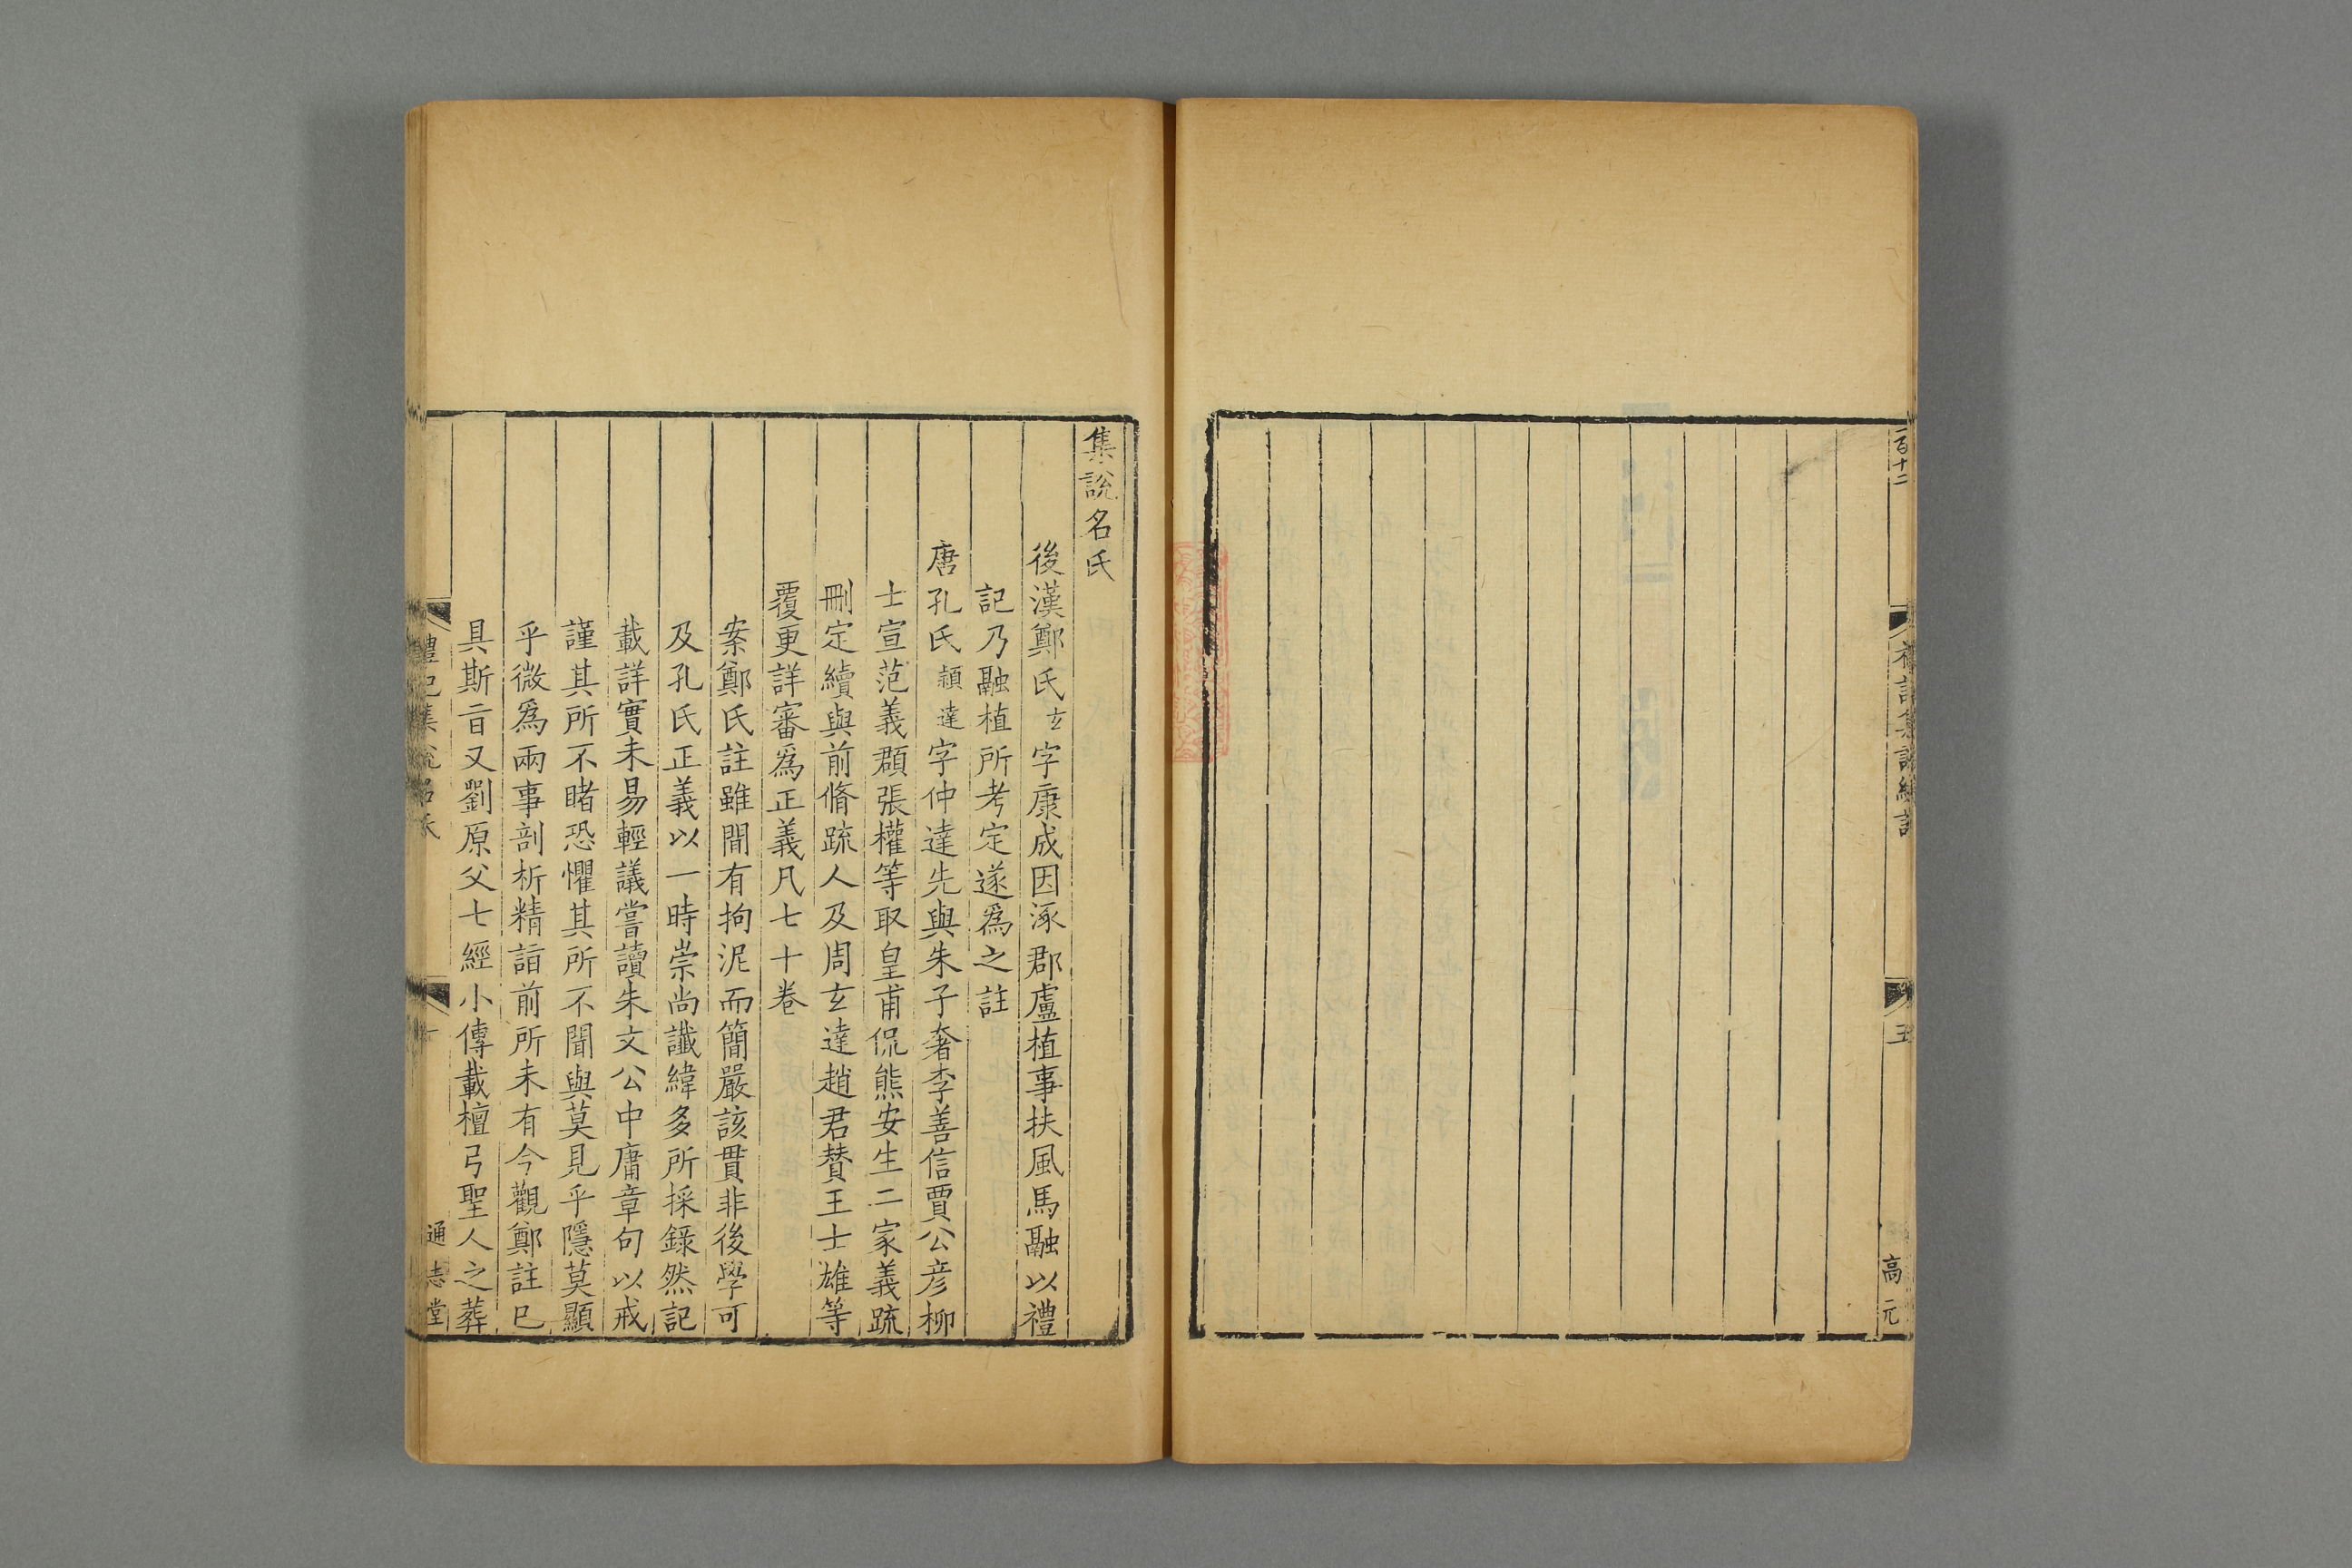 百十二
禮記集說統說
五
高元
集說名氏
後漢鄭氏玄字康成因涿郡盧植事扶風馬融以禮
記乃融植所考定遂爲之註
唐孔氏穎達字仲達先與朱子奢李善信賈公彦柳
士宣范義頵張權等取皇甫侃熊安生二家義疏
刪定續與前脩疏人及周玄達趙君賛王士雄等
覆更詳審爲正義凡七十卷
案鄭氏註雖間有拘泥而簡嚴該貫非後學可
及孔氏正義以一時崇尚讖緯多所採錄然記
載詳實未易輕議嘗讀朱文公中庸章句以戒
謹其所不睹恐懼其所不聞與莫見乎隱莫顯
乎微爲兩事剖析精詣前所未有今觀鄭註已
具斯旨又劉原父七經小傳載檀弓聖人之葬
禮記集說名氏
一
通志堂